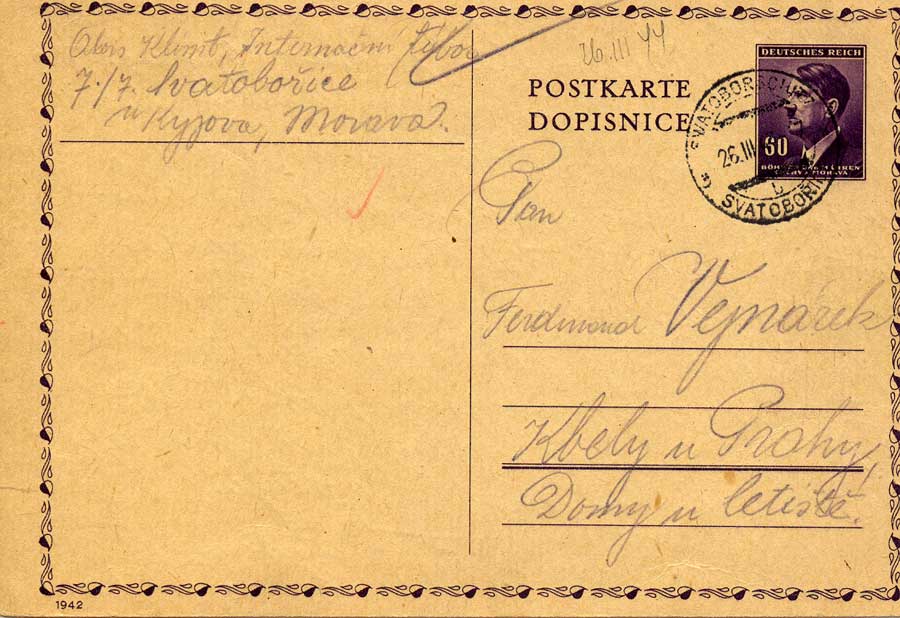 Alois Klimt, Internační tábor
7/7. Svatobořice
u Kyjova, Morava.
26.III 44
POSTKARTE
DOPISNICE
DEUTSCHES REICH
60
BÖHMEN UND MÄHREN
ČECHY A MORAVA
26.III
SVATOBOŘI
Pan
Ferdinand Vejnárek
Kbely u Prahy,
Domy u letiště.
1942